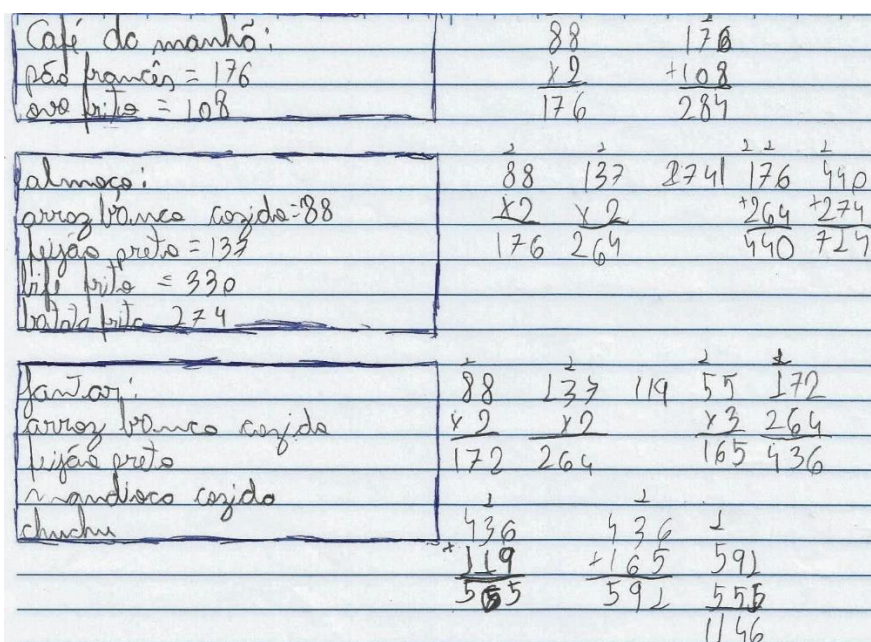 Café da manhã:
pão francês = 176
ovo frito = 108
88
x2
176
176
+108
284
almoço:
arroz branco cozido = 88
feijão preto = 137
bife frito = 330
batata frita 274
88
x2
176
137
x2
264
274
176
+264
440
440
+274
724
Jantar:
arroz branco cozido
feijão preto
mandioca cozida
chuchu
88
x2
172
137
x2
264
119
55
x3
165
172
264
436
436
+119
555
436
+165
591
591
555
1146